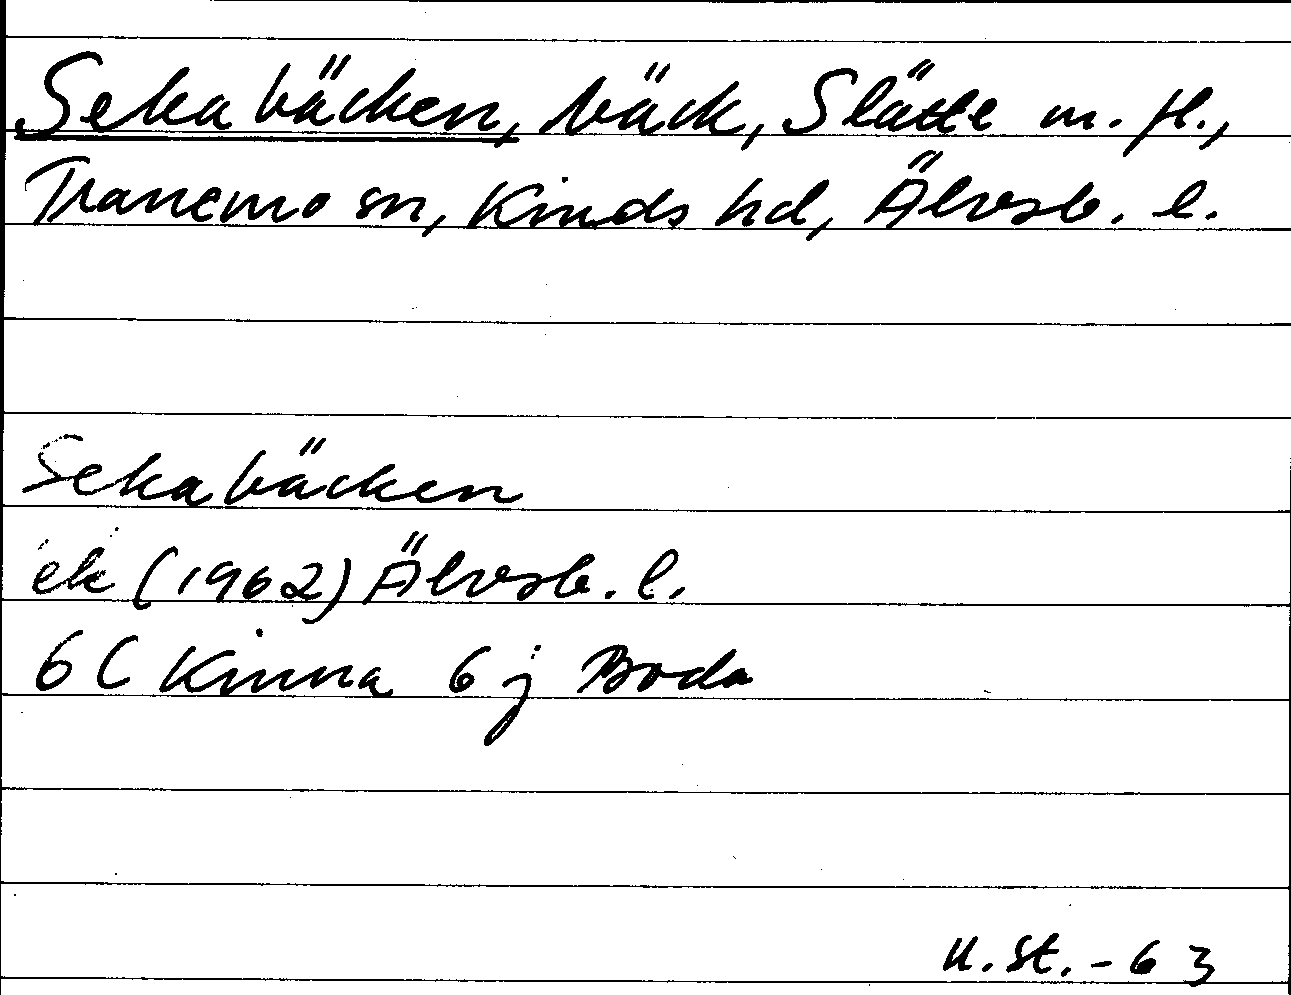 Sekabäcken, bäck, Slätte m. fl.,
Tranemo sn, Kinds hd, Älvsb. l.
Sekabäcken
ek (1962) Älvsb. l.
6 C Kinna 6 j Boda
U. St. - 63